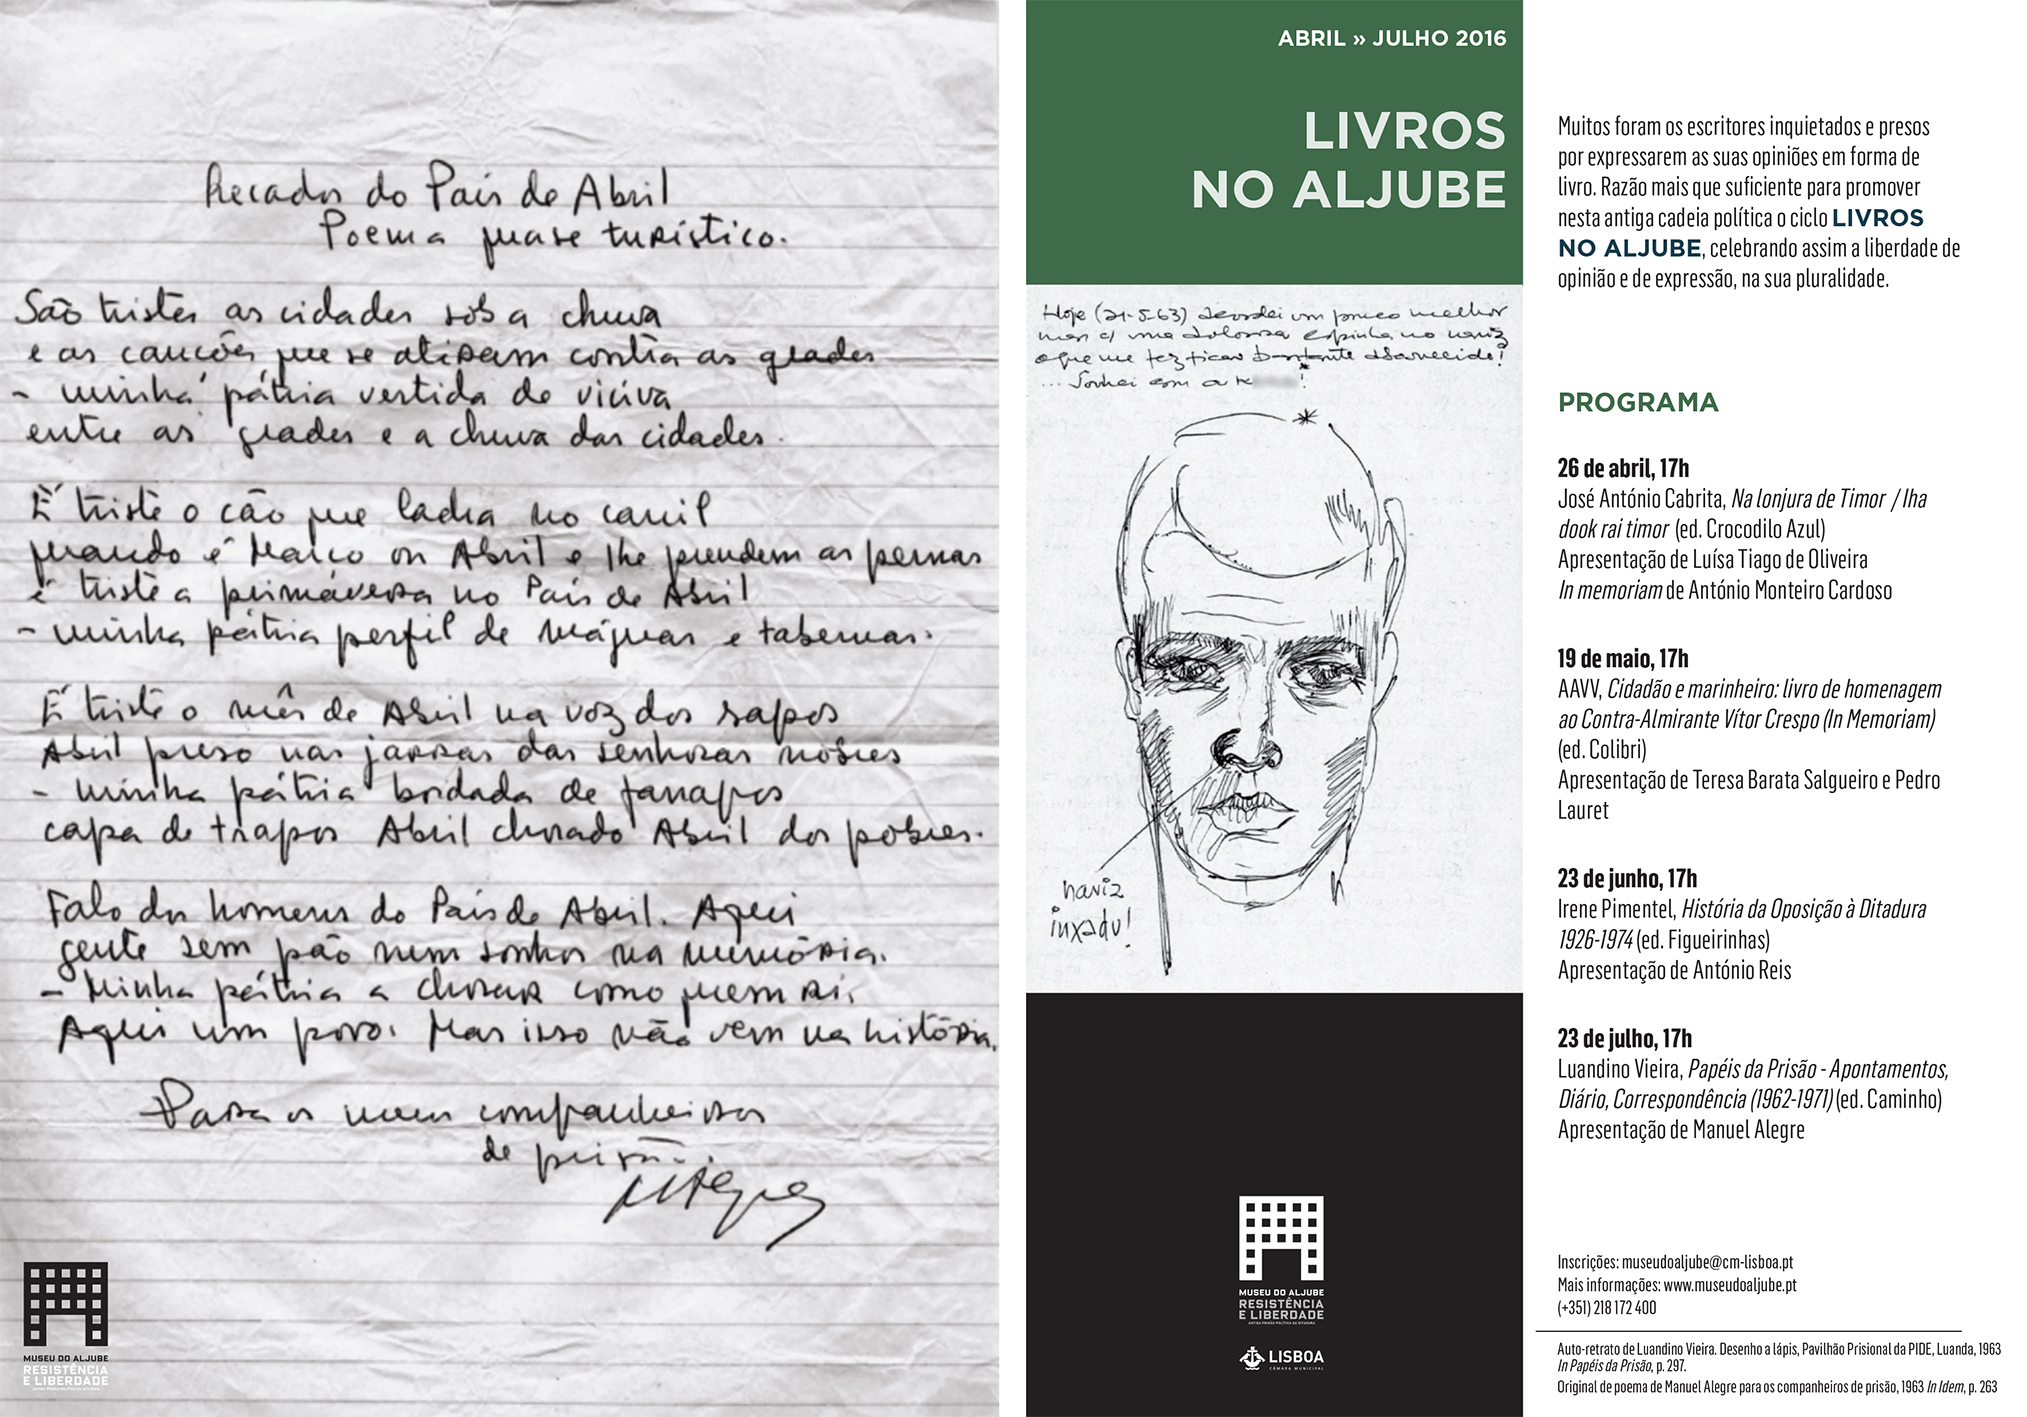 Recados do País de Abril
Poema quase turístico.
São tristes as cidades sob a chuva
e as canções que se atiram contra as grades
- minha pátria vestida de viúva
entre as grades e a chuva das cidades.
É triste o cão que ladra no canil
quando é Março ou Abril e lhe prendem as pernas
é triste a primavera no País de Abril
- minha pátria perfil de mágoas e tabernas.
É triste o mês de Abril na voz dos sapos
Abril preso nas jarras das senhoras nobres
- minha pátria bordada de farrapos
capa de trapos Abril chorado Abril dos pobres.
Falo dos homens do País de Abril. Aqui
gente sem pão nem sonhos na memória.
- Minha pátria a chorar como quem ri.
Aqui um povo. Mas isso não vem na história.
Para os meus companheiros
de prisão.
MAlegre
MUSEU DO ALJUBE
RESISTÊNCIA
E LIBERDADE
ANTIGA PRISÃO POLÍTICA DA DITADURA
ABRIL » JULHO 2016
LIVROS
NO ALJUBE
Hoje (21-5-63) acordei um pouco melhor
mas c/ uma dolorosa espinha no nariz
o que me fez ficar bastante aborrecido!
... Sonhei com a
nariz
inxado!
MUSEU DO ALJUBE
RESISTÊNCIA
E LIBERDADE
ANTIGA PRISÃO POLÍTICA DA DITADURA
LISBOA
CÂMARA MUNICIPAL
Muitos foram os escritores inquietados e presos
por expressarem as suas opiniões em forma de
livro. Razão mais que suficiente para promover
nesta antiga cadeia política o ciclo LIVROS
NO ALJUBE, celebrando assim a liberdade de
opinião e de expressão, na sua pluralidade.
PROGRAMA
26 de abril, 17h
José António Cabrita, Na lonjura de Timor / Iha
dook rai timor (ed. Crocodilo Azul)
Apresentação de Luísa Tiago de Oliveira
In memoriam de António Monteiro Cardoso
19 de maio, 17h
AAVV, Cidadão e marinheiro: livro de homenagem
ao Contra-Almirante Vítor Crespo (In Memoriam)
(ed. Colibri)
Apresentação de Teresa Barata Salgueiro e Pedro
Lauret
23 de junho, 17h
Irene Pimentel, História da Oposição à Ditadura
1926-1974 (ed. Figueirinhas)
Apresentação de António Reis
23 de julho, 17h
Luandino Vieira, Papéis da Prisão - Apontamentos,
Diário, Correspondência (1962-1971) (ed. Caminho)
Apresentação de Manuel Alegre
Inscrições: museudoaljube@cm-lisboa.pt
Mais informações: www.museudoaljube.pt
(+351) 218 172 400
Auto-retrato de Luandino Vieira. Desenho a lápis, Pavilhão Prisional da PIDE, Luanda, 1963
In Papéis da Prisão, p. 297.
Original de poema de Manuel Alegre para os companheiros de prisão, 1963 In Idem, p. 263